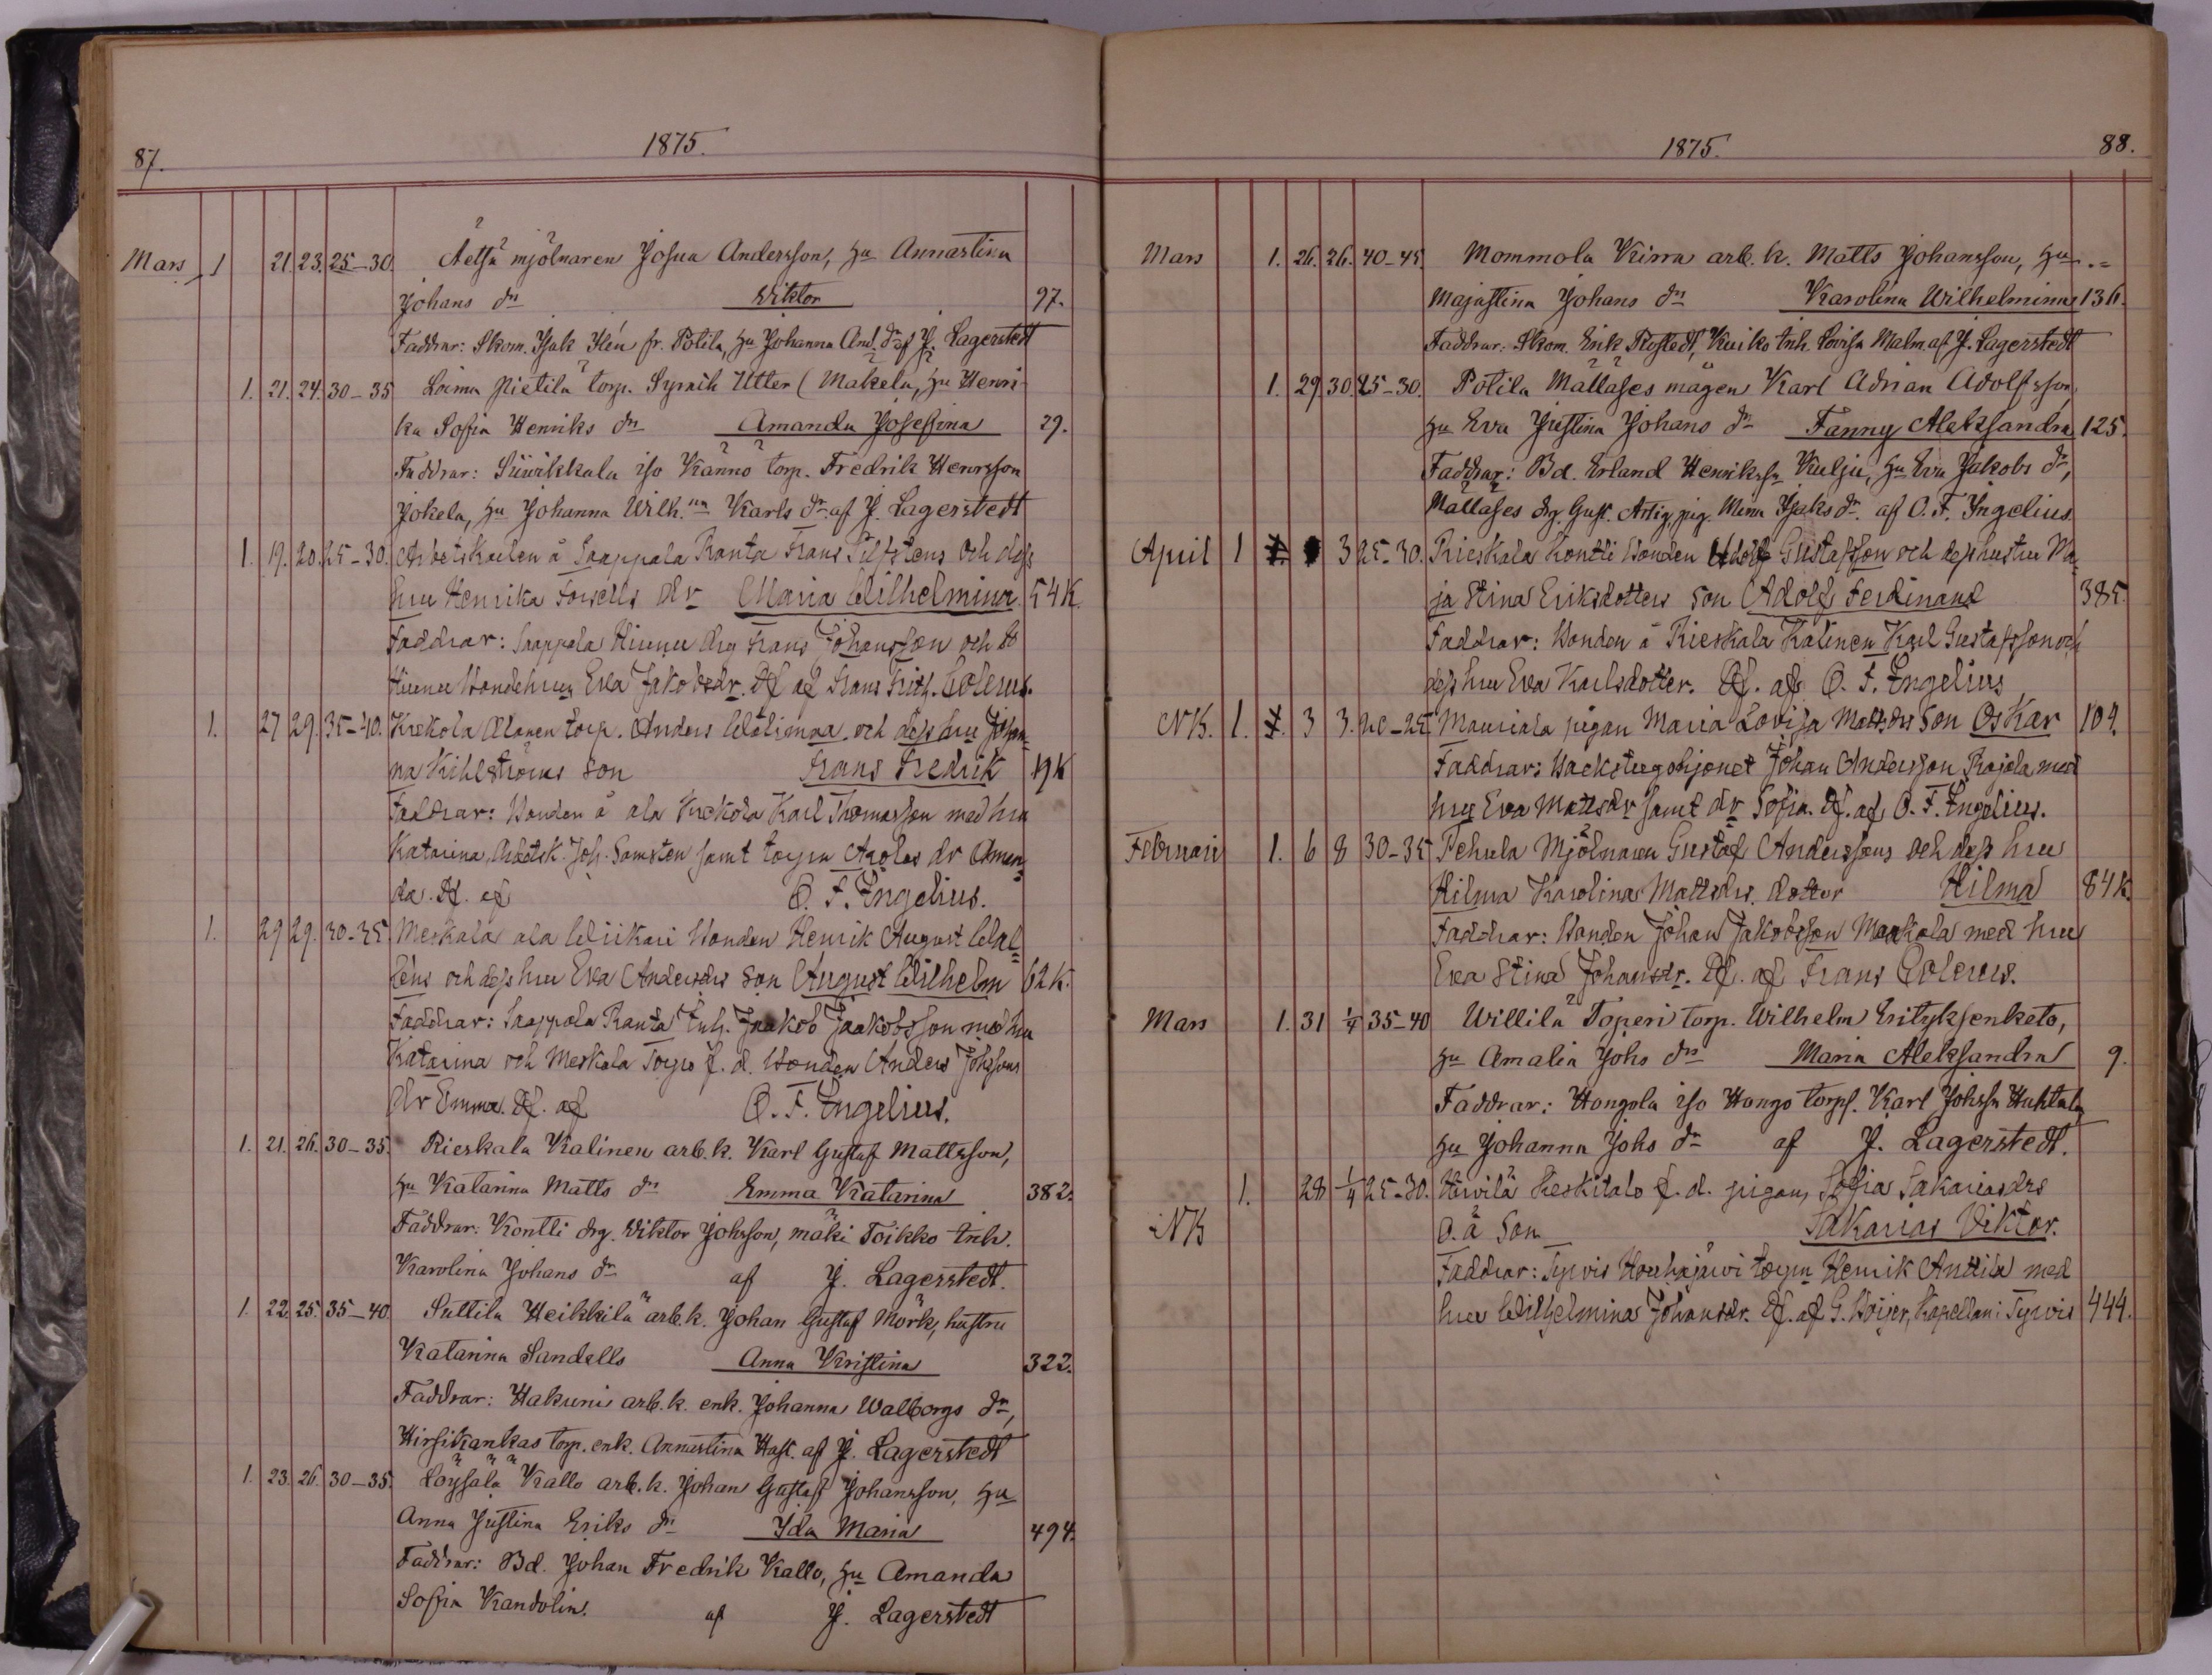 87.
1875.
Mars 1 21. 23. 25–30. Äetsä mjölnaren Josua Andersson, hu Annastina
Johans dr Viktor 97.
Faddrar: Skom. Isak Ilén fr. Potila, hu Johanna And. dr af J. Lagerstedt
1. 21. 24. 30–35 Loima Pietilä torp. Utter (Makela, hu Henri-
ka Sofia Henriks dr Amanda Josefina 29.
Faddrar: Suwikkala iso Kanno torp. Fredrik Henrsson
Jokela, hu Johanna Wilh.na Karls dr af J. Lagerstedt
1. 19. 20. 25–30. Arbetskarlen å Saappala Ranta Frans och dess
hru Henrika Forsells dr Maria Wilhelmina 54K.
Faddrar: Saappala Hiunu drg Frans Johansson och
Hiunu Bondehrun Eva Jakobsdr. Df af Frans Frith. Colerus.
1. 27 29. 35–40. Krekola Alanen torp. Anders och dess hru Johan-
na Kihlströms son Frans Fredrik 19K
Faddrar: Bonden å ala Krekola Karl Thomasson med hru
Katarina, Arbetsk. Joh. Samsten samt torpn dr Aman-
da. Df. af O. F. Engelius.
1. 29 29. 30–35 Meskala ala Wiikari Bonden Henrik August Wal-
léns och dess hru Eva Andersdrs son August Wilhelm 62K.
Faddrar: Saappala Ranta Inh. Jaakob Jaakobsson med hru
Katarina och Meskala f. d. Bonden Anders Johssons
dr Emma. Df. af O. F. Engelius.
1. 21. 26. 30–35. Rieskala Kalinen arb. k. Karl Gustaf Mattsson,
hu Katarina Matts dr Emma Katarina 382.
Faddrar: Kontti drg. Viktor Johsson, mäki Toikko Inh.
Karolina Johans dr af J. Lagerstedt.
1. 22. 25. 35–40. Suttila Heikkilä arb. k. Johan Gustaf Mörk, hustru
Katarina Sandells Anna Kristina 322.
Faddrar: Hakuni arb. k. enk. Johanna Walborgs dr,
Hirsikankas torp. enk. Annastina Hast. af J. Lagerstedt
1. 23. 26. 30–35. Löysälä Kallo arb. k. Johan Gustaf Johansson, hu
Anna Justina Eriks dr Ida Maria 494.
Faddrar: Bd. Johan Fredrik Kallo, hu Amanda
Sofia Kandolin. af J. Lagerstedt
1875.
88.
Mars 1. 26. 26. 40–45. Mommola Kirra arb. k. Matts Johansson, hu
Majastina Johans dr Karolina Wilhelmina 136.
Faddrar: Skom. Erik Rostedt, Kuiko Inh. Lovisa Malm. af J. Lagerstedt
1. 29. 30. 25–30. Potila Mällases mågen Karl Adrian Adolfsson,
hu Eva Justina Johans dr Fanny Aleksandra 125.
Faddrar: Bd. Erland Henrikssn Kulju, hu Eva Jakobs dr,
Mällases drg. Gust. Artig, pig. Mina Isaks dr. af O. F. Ingelius.
April 1 3 25–30. Rieskala Kontti Bonden Adolf Gustafsson och dess hustru Ma-
ja Stina Eriksdotters son Adolf Ferdinand 385.
Faddrar: Bonden å Rieskala Kalinen Karl Gustafsson och
dess hru Eva Karlsdotter. Df. af O. F. Engelius
NB. 1. 3 3. 20–25 Mauriala pigan Maria Lovisa Mattsdrs son Oskar 109.
Faddrar: Backstugohjonet Johan Andersson Rajala med
hru Eva Mattsdr samt dr Sofia. Df. af O. F. Engelius.
Februari 1. 6 8 30–35 Pehula Mjölnaren Gustaf Anderssons och dess hru
Hilma Karolina Mattsdrs. dotter Hilma 84K.
Faddrar: Bonden Johan Jakobsson Maakala med hru
Eva Stina Johansdr. Df. af Frans Colerus.
Mars 1. 31 1/4 35–40 Willilä Toperi torp. Wilhelm Erityksenketo,
hu Amalia Johs dr Maria Aleksandra 9.
Faddrar: Hongola iso Hongo torps. Karl Johssn Huhtala
hu Johanna Johs dr af J. Lagerstedt.
1. 28 1/4 25–30. Keskitalo f. d. pigan Sofia Sakariasdrs
NB O. ä Son Sakarias Viktor.
Faddrar: Tyrvis Houhajärvi torpn Henrik Anttila med
hru Wilhelmina Johansdr. Df. af G. Höijer, Kapellan i Tyrvis 444.